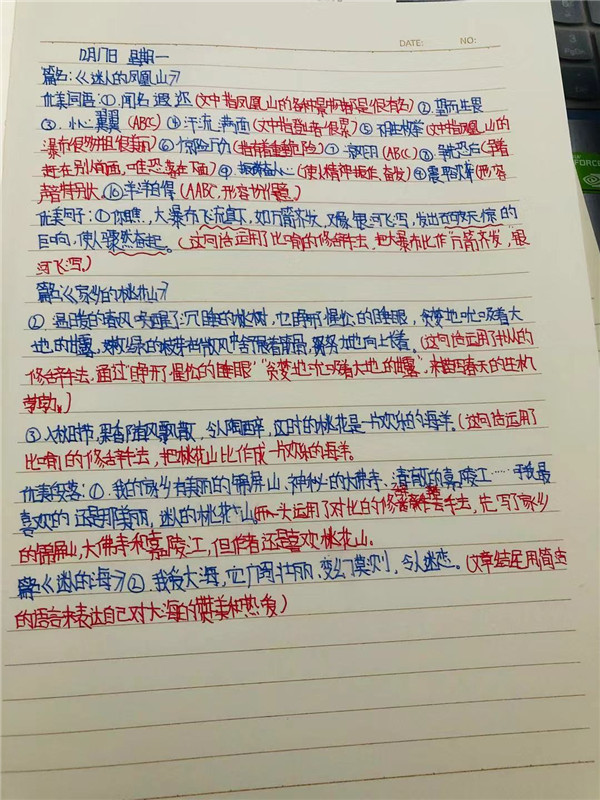 DATE: NO:
12月17日 星期一
篇名:《迷人的凤凰山》
优美词语:①闻名遐迩(文中指凤凰山的各种景物都是很有名)②望而生畏
③小心翼翼(ABCC)④汗流满面(文中指登山者很累)⑤(文中指凤凰山的
瀑布很势强很美丽)⑥惊险万分(指有着重重危险)⑦(ABCC)⑧争先恐后(争着
赶在别人前面,唯恐落在下面)⑨振奋人心(使人精神振作、奋发)⑨震耳欲聋(形容
声音特别大。)⑩洋洋自得(AABC,形容
优美句子:①你瞧,大瀑布飞流直下,如万箭齐发,又像银河飞泻,发出
巨响,使人骤然奋起。(这句话运用了比喻的修辞手法,把大瀑布比作"万箭齐发","银
河飞泻。)
篇名《家乡的桃花山》
②温暖的春风唤醒了沉睡的桃树,它睁开惺忪的睡眼,贪婪地吮吸着大
地的甘露。嫩绿的枝芽在微风中舒展着,努力地向上长着。(这句话运用了拟人的
修辞手法,通过"睁开惺忪的睡眼""贪婪地吮吸着大地的甘露",来描写春天的生机
勃勃。)
③入秋时节,果香随风飘散,令人陶醉,这时的桃花是一片欢乐的海洋。(这句话运用了
比喻的修辞手法,把桃花山比作成一片欢乐的海洋。
优美段落:①我的家乡有美丽的锦屏山、神秘的大佛寺、清澈的嘉陵江……可我最
喜欢的还是那美丽,迷人的桃花山。(开头运用了对比的修辞手法,先写了家乡
的锦屏山,大佛寺和嘉陵江,但作者还是喜欢桃花山。
篇名《迷人的海》②我爱大海,它广阔壮丽、变幻莫测,令人迷恋。(文章结尾用简洁
的语言来表达自己对大海的赞美和热爱)